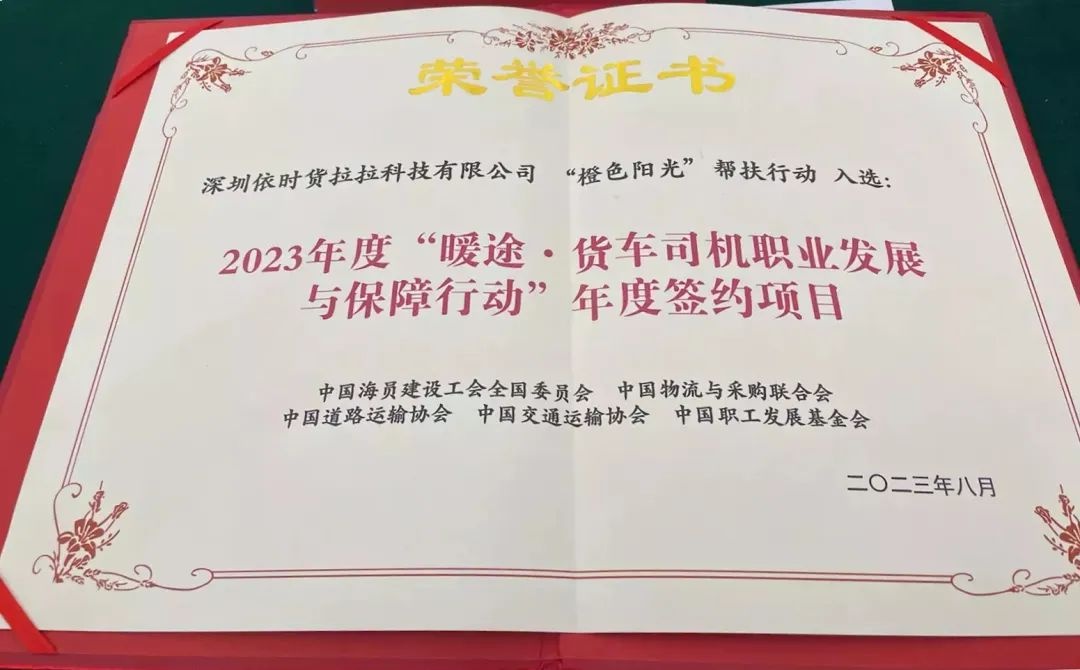 荣誉证书
深圳依时货拉拉科技有限公司 “橙色阳光”帮扶行动 入选:
2023年度“暖途·货车司机职业发展
与保障行动”年度签约项目
中国海员建设工会全国委员会 中国物流与采购联合会
中国道路运输协会 中国交通运输协会 中国职工发展基金会
二〇二三年八月